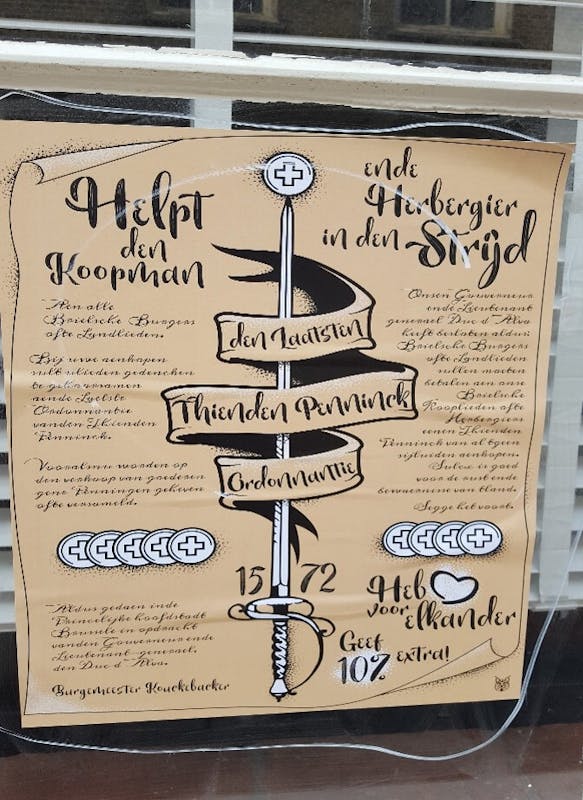 Helpt
den
Koopman
ende
Herbergier
in den Strijd
den Laatsten
Thienden Penninck
Ordonnantie
Aen alle
Brielsche Burgers
ofte Landlieden.
Bij uwe aenkopen
sult ulieden gedencken
te gehoorsamen
aende Laetste
Ordonnantie
vanden Thienden
Penninck.
Vooralnu worden op
den verkoop van goederen
gene Penningen geheven
ofte versameld.
Onsen Gouverneur
ende Lieutenant
generael Duc d'Alva
heeft besloten aldus:
Brielsche Burgers
ofte Landlieden
sullen moeten
betalen aen onse
Brielsche
Kooplieden ofte
Herbergiers
eenen Thienden
Penninck van al tgeen
sijluiden aenkopen.
Sulcx is goed
voor de rust ende
bewaernisse van tland.
Segge het voort.
15 72
Aldus gedaen inde
Princelijke hoofdstadt
Brussele in opdracht
vanden Gouverneur ende
Lieutenant-generael,
den Duc d'Alva.
Burgemeester Kouckebacker
Heb
voor elkander
Geef
10% extra!